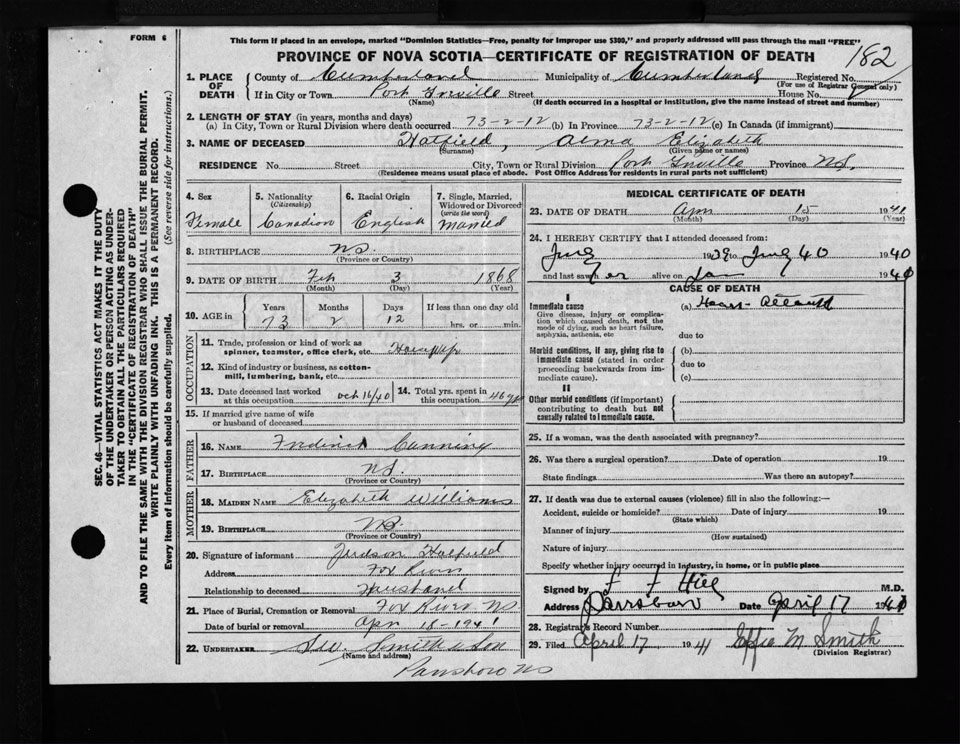 FORM 6
This form if placed in an envelope, marked "Dominion Statistics—Free, penalty for improper use $300," and properly addressed will pass through the mail "FREE"
PROVINCE OF NOVA SCOTIA—CERTIFICATE OF REGISTRATION OF DEATH
182
1. PLACE OF DEATH
County of Cumberland Municipality of Cumberland Registered No.
(For use of Registrar General only)
If in City or Town Port Greville Street House No.
(Name) (If death occurred in a hospital or institution, give the name instead of street and number)
2. LENGTH OF STAY (in years, months and days)
(a) In City, Town or Rural Division where death occurred 73-2-12 (b) In Province 73-2-12 (c) In Canada (if immigrant)
3. NAME OF DECEASED Hatfield, Alma Elizabeth
(Surname) (Given name or names)
RESIDENCE No. Street City, Town or Rural Division Port Greville Province NS.
(Residence means usual place of abode. Post Office Address for residents in rural parts not sufficient)
4. Sex
Female
5. Nationality
(Citizenship)
Canadian
6. Racial Origin
English
7. Single, Married, Widowed or Divorced
(write the word)
Married
8. BIRTHPLACE NS.
(Province or Country)
9. DATE OF BIRTH Feb 3 1868
(Month) (Day) (Year)
10. AGE in
Years Months Days If less than one day old
73 2 12 hrs. or min.
OCCUPATION
11. Trade, profession or kind of work as spinner, teamster, office clerk, etc.
12. Kind of industry or business, as cotton-mill, lumbering, bank, etc.
13. Date deceased last worked at this occupation Oct 16/40
14. Total yrs. spent in this occupation 46 yrs
15. If married give name of wife or husband of deceased
FATHER
16. NAME Frederick Canning
17. BIRTHPLACE NS.
(Province or Country)
MOTHER
18. MAIDEN NAME Elizabeth Williams
19. BIRTHPLACE NS
(Province or Country)
20. Signature of informant Judson Hatfield
Address Fox River
Relationship to deceased Husband
21. Place of Burial, Cremation or Removal Fox River NS
Date of burial or removal Apr 18-1941
22. UNDERTAKER Smith & Son
(Name and address)
Parrsboro NS
MEDICAL CERTIFICATE OF DEATH
23. DATE OF DEATH Apr 15 1941
(Month) (Day) (Year)
24. I HEREBY CERTIFY that I attended deceased from:
1939 to 40 1940
and last saw her alive on Jan 1940
CAUSE OF DEATH
I
Immediate cause
Give disease, injury or complication which caused death, not the mode of dying, such as heart failure, asphyxia, asthenia, etc
(a)
due to
Morbid conditions, if any, giving rise to immediate cause (stated in order proceeding backwards from immediate cause).
(b)
due to
(c)
II
Other morbid conditions (if important) contributing to death but not causally related to immediate cause.
25. If a woman, was the death associated with pregnancy?
26. Was there a surgical operation? Date of operation 19
State findings Was there an autopsy?
27. If death was due to external causes (violence) fill in also the following:—
Accident, suicide or homicide? Date of injury 19
(State which)
Manner of injury
(How sustained)
Nature of injury
Specify whether injury occurred in industry, in home, or in public place
Signed by F F Hill M.D.
Address Parrsboro Date April 17 1941
28. Registrar's Record Number
29. Filed April 17 1941 Effie M Smith
(Division Registrar)
SEC. 46—VITAL STATISTICS ACT MAKES IT THE DUTY
OF THE UNDERTAKER OR PERSON ACTING AS UNDER-
TAKER TO OBTAIN ALL THE PARTICULARS REQUIRED
IN THE "CERTIFICATE OF REGISTRATION OF DEATH"
AND TO FILE THE SAME WITH THE DIVISION REGISTRAR WHO SHALL ISSUE THE BURIAL PERMIT.
WRITE PLAINLY WITH UNFADING INK. THIS IS A PERMANENT RECORD.
Every item of information should be carefully supplied. (See reverse side for instructions.)